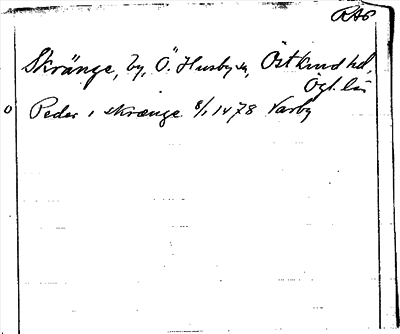 RAP
Skränge, by, Ö. Husby sn, Östkind hd,
Ögl. län
O Peder i skrænge 8/1 1478 Varby